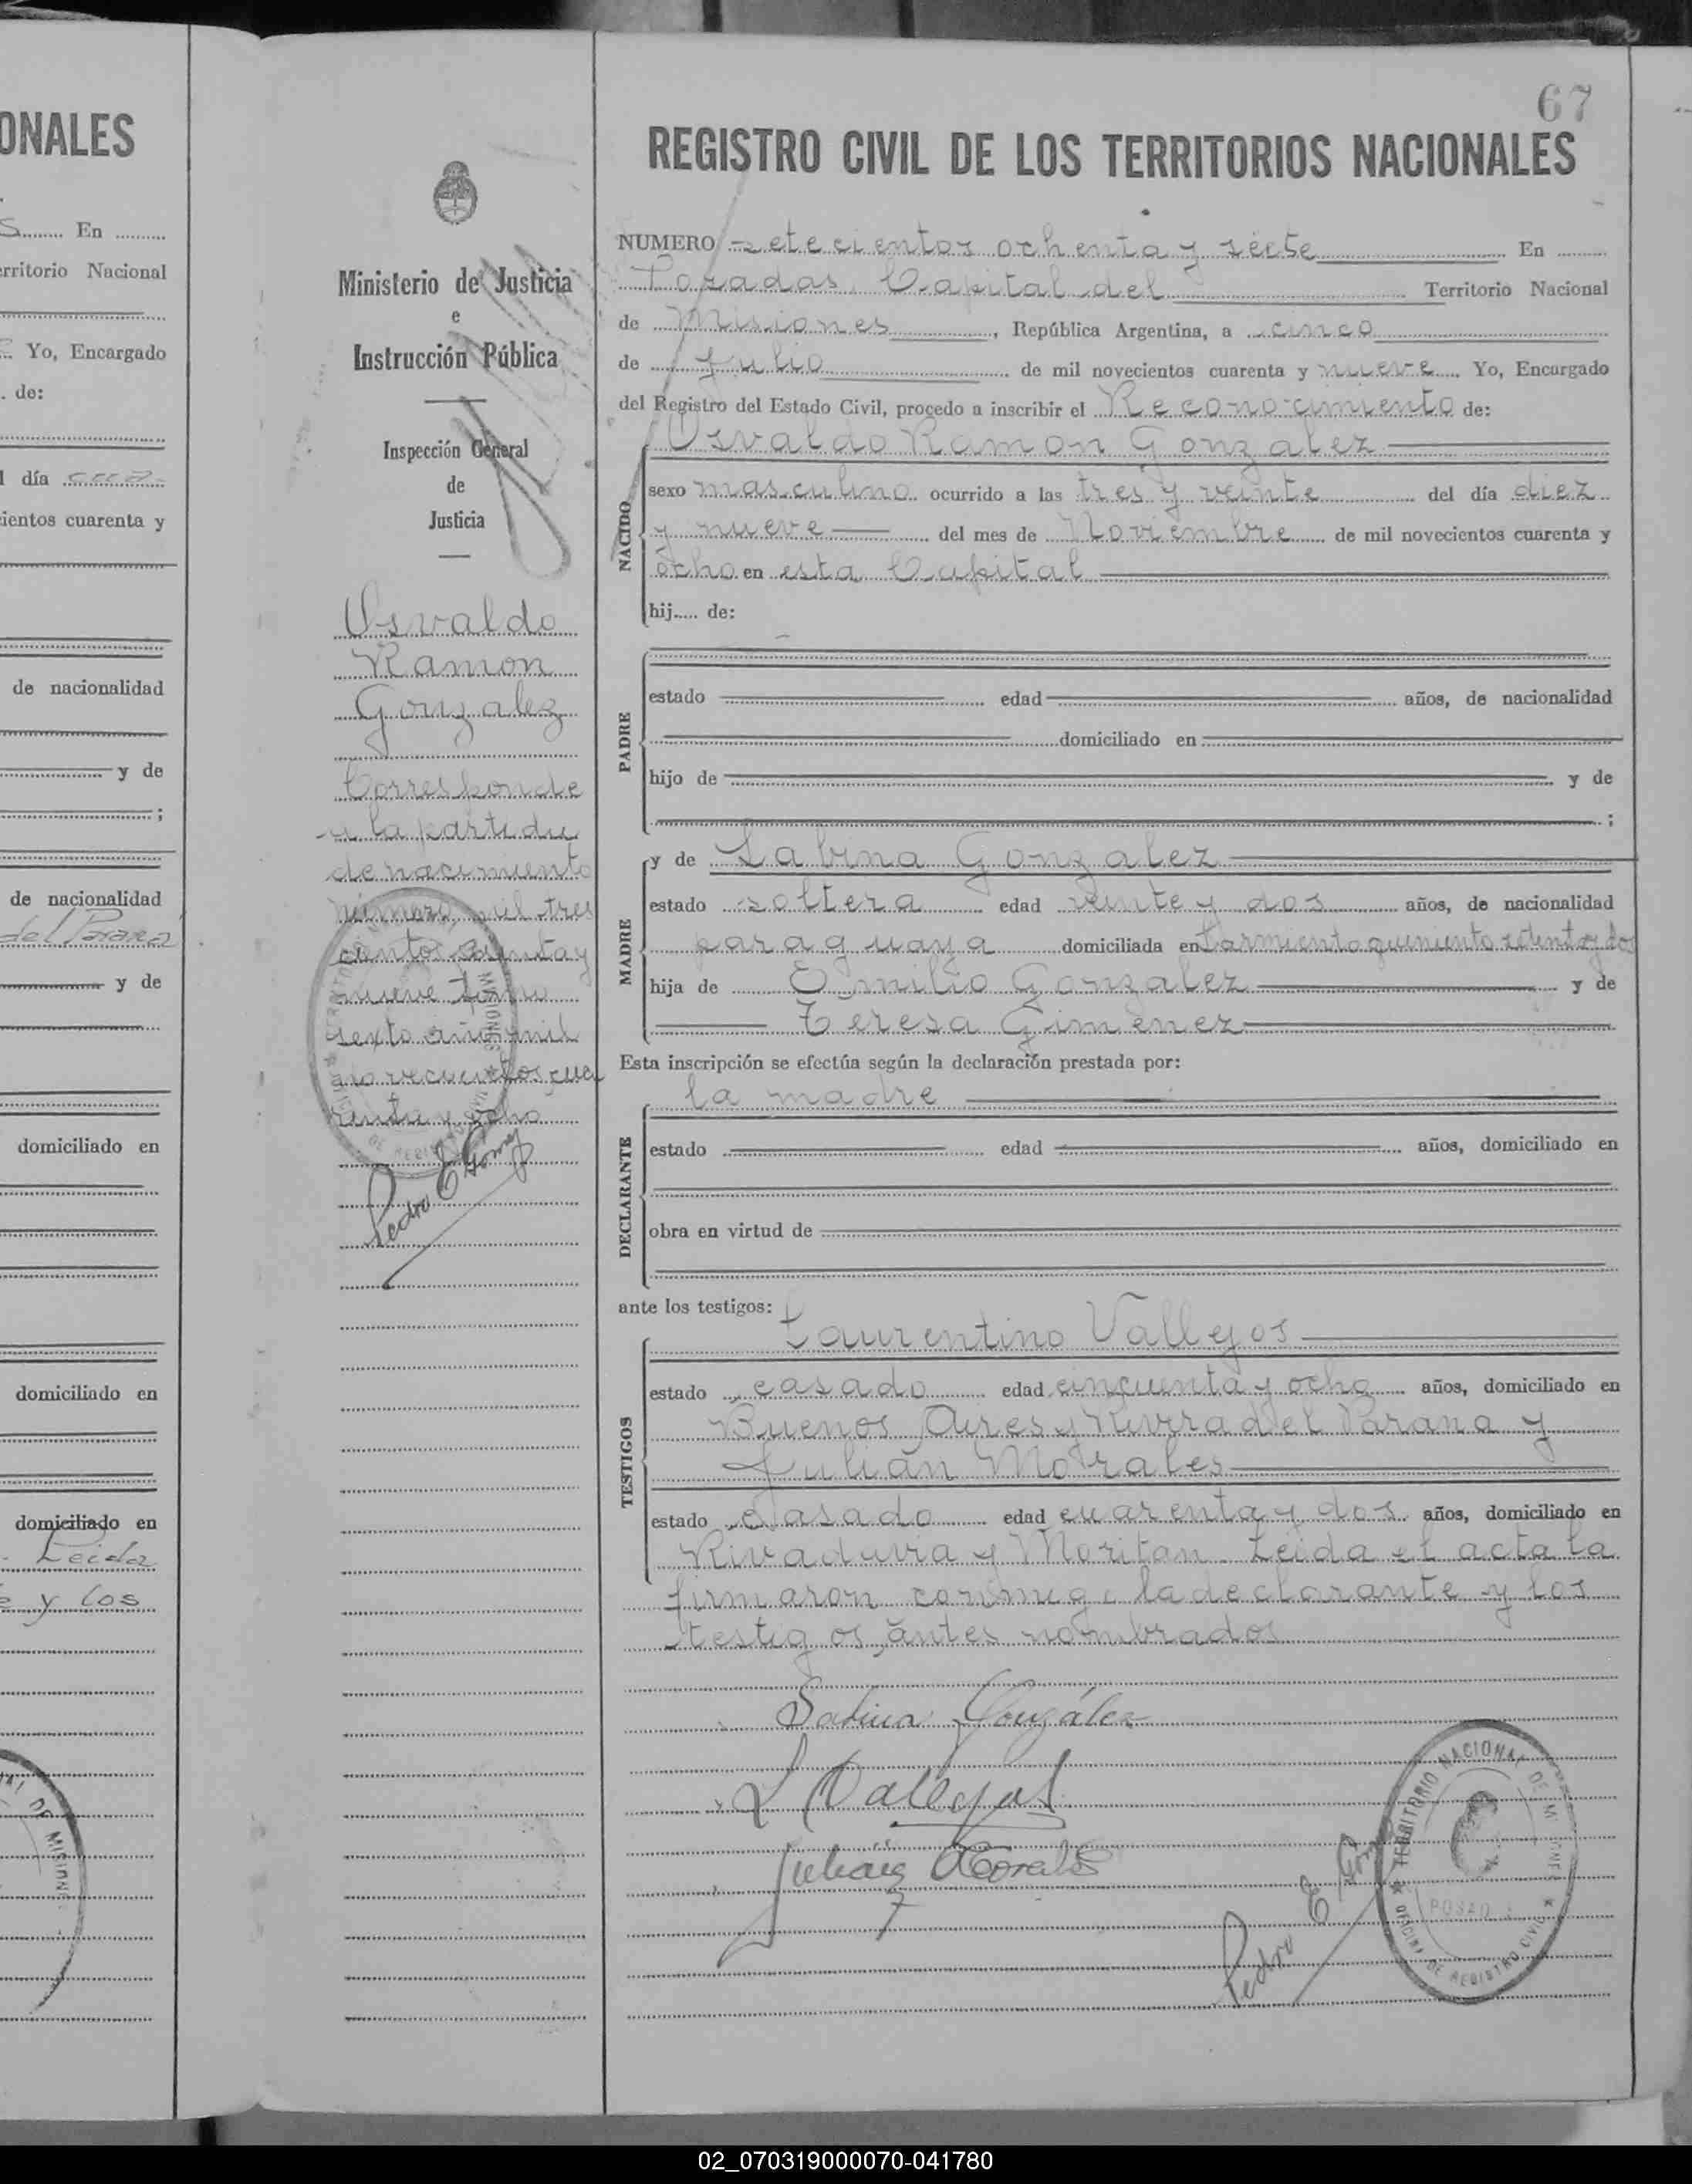 ONALES
S En
erritorio Nacional
Yo, Encargado
de:
l día
cientos cuarenta y
de nacionalidad
y de
;
de nacionalidad
del Paraná
y de
domiciliado en
domiciliado en
domiciliado en
Leida
e y los
Ministerio de Justicia
e
Instrucción Pública
Inspección General
de
Justicia
Osvaldo
Ramon
Gonzalez
Corresponde
a la partida
de nacimiento
número mil tres
cientos y
nueve tomo
sexto año mil
novecientos cua
renta y ocho
Pedro E Gomez
67
REGISTRO CIVIL DE LOS TERRITORIOS NACIONALES
NUMERO setecientos ochenta y siete En
Posadas, Capital del Territorio Nacional
de Misiones, República Argentina, a cinco
de Julio de mil novecientos cuarenta y nueve Yo, Encargado
del Registro del Estado Civil, procedo a inscribir el Reconocimiento de:
Osvaldo Ramon Gonzalez
NACIDO
sexo masculino ocurrido a las tres y veinte del día diez
y nueve del mes de Noviembre de mil novecientos cuarenta y
ocho en esta Capital
hij..... de:
PADRE
estado edad años, de nacionalidad
domiciliado en
hijo de y de
;
MADRE
y de Sabina Gonzalez
estado soltera edad veinte y dos años, de nacionalidad
paraguaya domiciliada en Sarmiento quinientos y dos
hija de Emilio Gonzalez y de
Teresa Gimenez
Esta inscripción se efectúa según la declaración prestada por:
DECLARANTE
la madre
estado edad años, domiciliado en
obra en virtud de
ante los testigos:
TESTIGOS
Laurentino Vallejos
estado casado edad cincuenta y ocho años, domiciliado en
Buenos Aires y Rivera del Parana y
Julián Morales
estado casado edad cuarenta y dos años, domiciliado en
Rivadavia y Moritan. Leida el acta la
firmaron conmigo la declarante y los
testigos antes nombrados
Sabina González
L Vallejos
Julián Morales
Pedro E Gomez
TERRITORIO NACIONAL DE MISIONES
POSADAS
OFICINA DE REGISTRO CIVIL
02_070319000070-041780